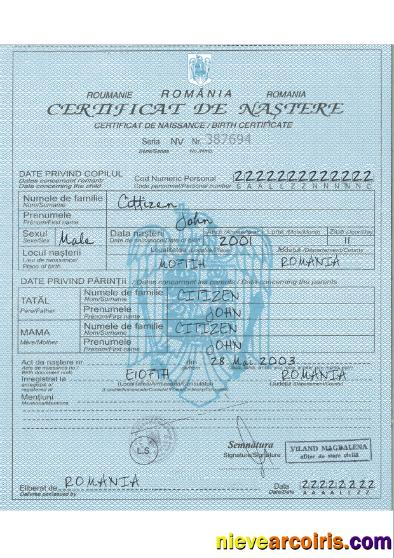 ROUMANIE ROMÂNIA ROMANIA
CERTIFICAT DE NAȘTERE
CERTIFICAT DE NAISSANCE / BIRTH CERTIFICATE
Seria NV Nr. 387694
DATE PRIVIND COPILUL Cod Numeric Personal 2222222222222
Date concerning the child Code personnel/Personal number S A A L L Z Z N N N N N C
Numele de familie Cittizen
Nom/Surname
Prenumele John
Prénom/First name
Sexul Male Data nașterii 2001 11
Sexe/Sex Date de naissance/Date of birth
Locul nașterii MOFTIH ROMANIA
Lieu de naissance/
Place of birth
DATE PRIVIND PĂRINȚII
TATĂL Numele de familie CITIZEN
Nom/Surname
Père/Father Prenumele JOHN
Prénom/First name
MAMA Numele de familie CITIZEN
Nom/Surname
Mère/Mother Prenumele JOHN
Prénom/First name
Act de naștere nr. din 28 Mai 2003
Înregistrat la EIOFIH ROMANIA
Mențiuni
L.S.
Semnătura
Signature/Signature
VILAND MAGDALENA
ofițer de stare civilă
Eliberat de ROMANIA Data 22222222
Date/Date A A A A L L Z Z
nievearcoiris.com